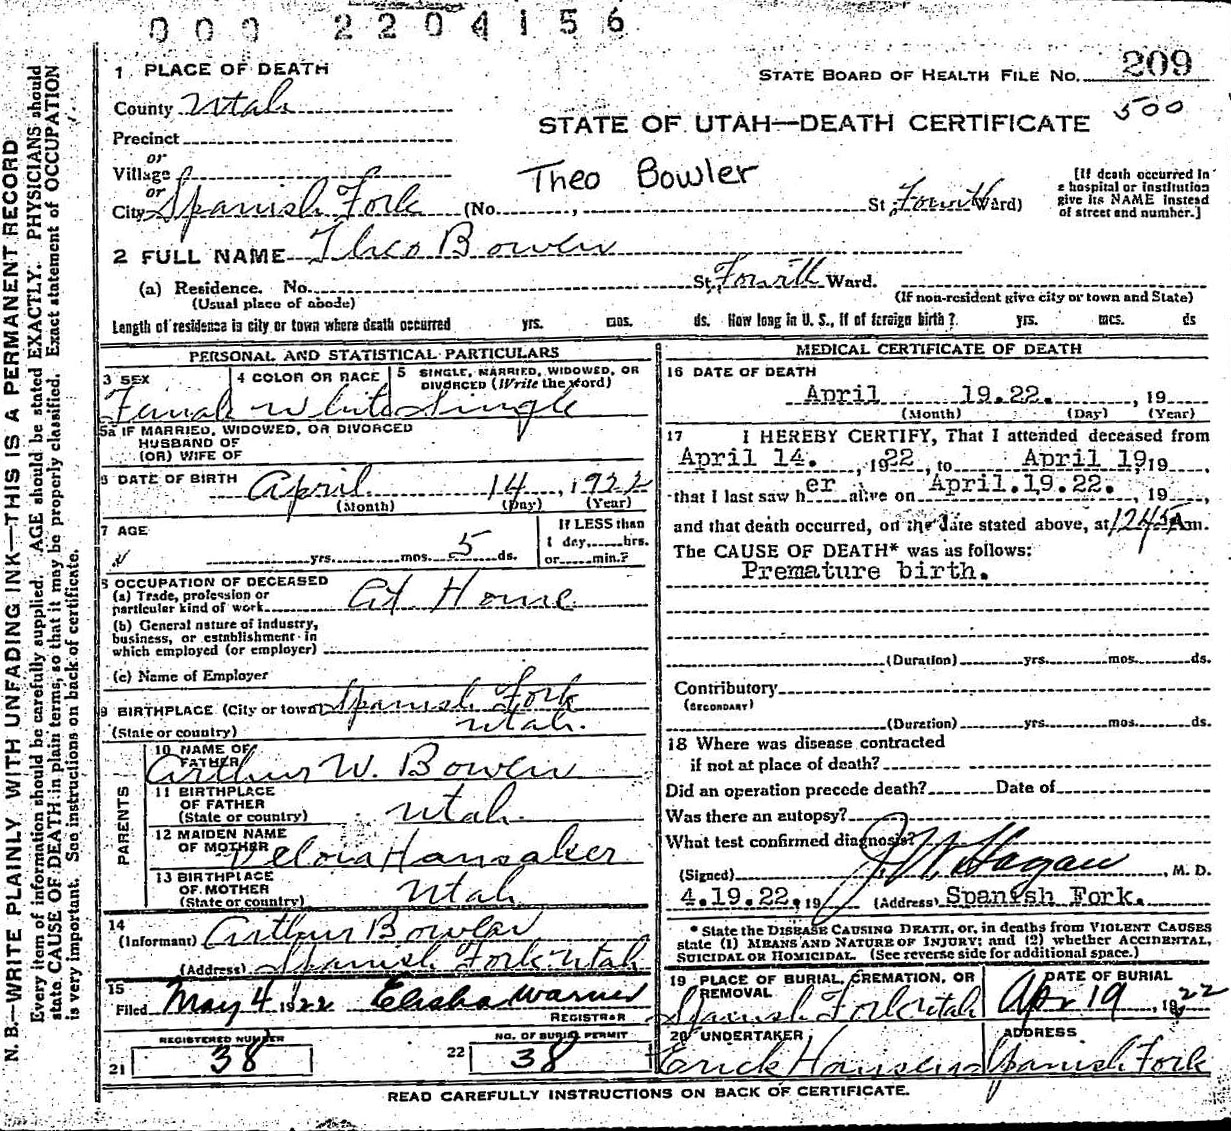 0 0 0 2 2 0 4 1 5 6
1 PLACE OF DEATH
STATE BOARD OF HEALTH FILE NO. 209
County Utah
500
STATE OF UTAH—DEATH CERTIFICATE
Precinct
or
Village
Theo Bowler
or
City Spanish Fork (No. , St. Fourth Ward)
[If death occurred in
a hospital or institution
give its NAME instead
of street and number.]
2 FULL NAME Theo Bowler
(a) Residence. No. St. Fourth Ward.
(Usual place of abode) (If non-resident give city or town and State)
Length of residence in city or town where death occurred yrs. mos. ds. How long in U. S., if of foreign birth? yrs. mos. ds
PERSONAL AND STATISTICAL PARTICULARS
3 SEX 4 COLOR OR RACE 5 SINGLE, MARRIED, WIDOWED, OR
DIVORCED (Write the word)
Female White Single
5a IF MARRIED, WIDOWED, OR DIVORCED
HUSBAND OF
(OR) WIFE OF
6 DATE OF BIRTH April 14, 1922
(Month) (Day) (Year)
7 AGE If LESS than
1 day, hrs.
yrs. mos. 5 ds. or min.?
8 OCCUPATION OF DECEASED
(a) Trade, profession or
particular kind of work At Home
(b) General nature of industry,
business, or establishment in
which employed (or employer)
(c) Name of Employer
9 BIRTHPLACE (City or town) Spanish Fork
(State or country) Utah.
PARENTS
10 NAME OF
FATHER Arthur W. Bowler
11 BIRTHPLACE
OF FATHER
(State or country) Utah.
12 MAIDEN NAME
OF MOTHER Delora Hansaker
13 BIRTHPLACE
OF MOTHER
(State or country) Utah
14
(Informant) Arthur Bowler
(Address) Spanish Fork Utah
15
Filed May 4 1922 Elisha Warner
REGISTRAR
REGISTERED NUMBER
21 38
NO. OF BURIAL PERMIT
22 38
MEDICAL CERTIFICATE OF DEATH
16 DATE OF DEATH
April 19.22. , 19
(Month) (Day) (Year)
17 I HEREBY CERTIFY, That I attended deceased from
April 14. , 1922 , to April 19 19 ,
that I last saw h er alive on April.19.22. , 19 ,
and that death occurred, on the date stated above, at 1245 A m.
The CAUSE OF DEATH* was as follows:
Premature birth.
(Duration) yrs. mos. ds.
Contributory
(SECONDARY)
(Duration) yrs. mos. ds.
18 Where was disease contracted
if not at place of death?
Did an operation precede death? Date of
Was there an autopsy?
What test confirmed diagnosis?
(Signed) J. W. Hagan , M. D.
4.19.22. , 19 (Address) Spanish Fork.
* State the DISEASE CAUSING DEATH, or, in deaths from VIOLENT CAUSES
state (1) MEANS AND NATURE OF INJURY; and (2) whether ACCIDENTAL,
SUICIDAL OR HOMICIDAL. (See reverse side for additional space.)
19 PLACE OF BURIAL, CREMATION, OR
REMOVAL
Spanish Fork Utah
DATE OF BURIAL
Apr 19, 1922
20 UNDERTAKER
Erick Hansen
ADDRESS
Spanish Fork
READ CAREFULLY INSTRUCTIONS ON BACK OF CERTIFICATE.
N. B.—WRITE PLAINLY WITH UNFADING INK—THIS IS A PERMANENT RECORD
Every item of information should be carefully supplied. AGE should be stated EXACTLY. PHYSICIANS should
state CAUSE OF DEATH in plain terms, so that it may be properly classified. Exact statement of OCCUPATION
is very important. See instructions on back of certificate.